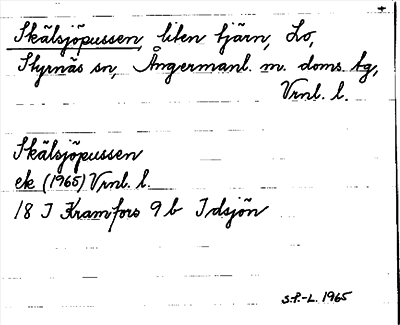 Skälsjöpussen, liten tjärn, Lo,
Styrnäs sn, Ångermanl. m. doms. tg,
Vrnl. l.
Skälsjöpussen
ek (1965) Vrnl. l.
18 I Kramfors 9 b Idsjön
S.F.-L. 1965